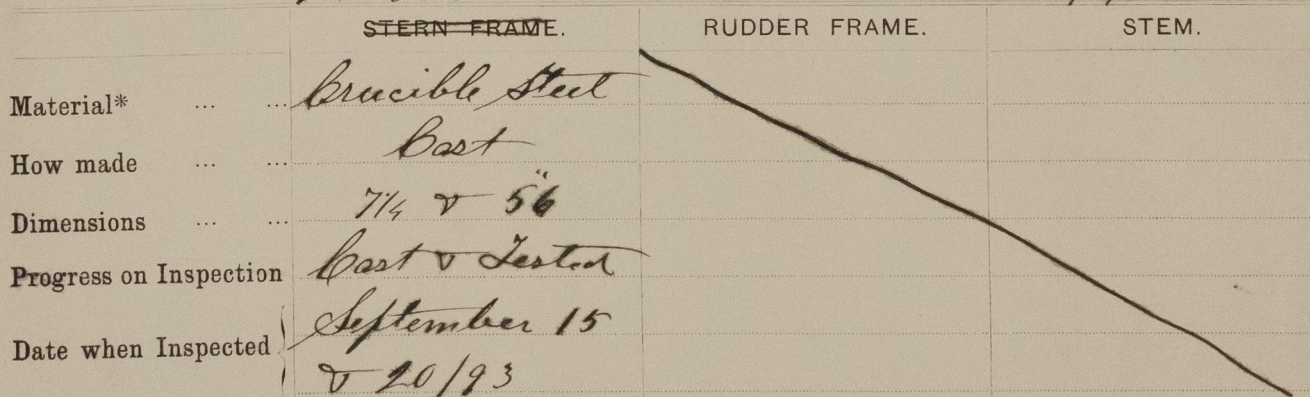 STERN FRAME. RUDDER FRAME. STEM.
Material* ... ... Crucible Steel
How made ... ... Cast
Dimensions ... ... 7¼ & 56"
Progress on Inspection Cast & Tested
Date when Inspected { September 15
& 20/93